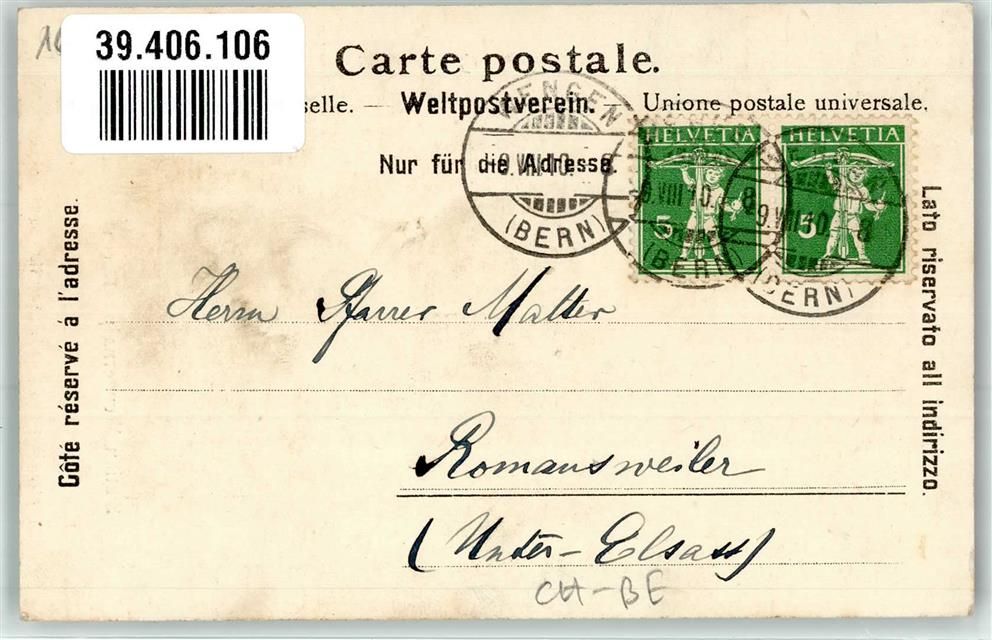 39.406.106
Carte postale.
selle. — Weltpostverein. — Unione postale universale.
Nur für die Adresse.
Côté réservé à l'adresse.
Lato riservato all indirizzo.
HELVETIA HELVETIA
5 5
WENGEN
9.VIII.10. 8
(BERN)
9.VIII.10. 8
(BERN)
9.VIII.10. 8
(BERN)
Herrn Pfarrer Matter
Romansweiler
(Unter-Elsass)
CH-BE